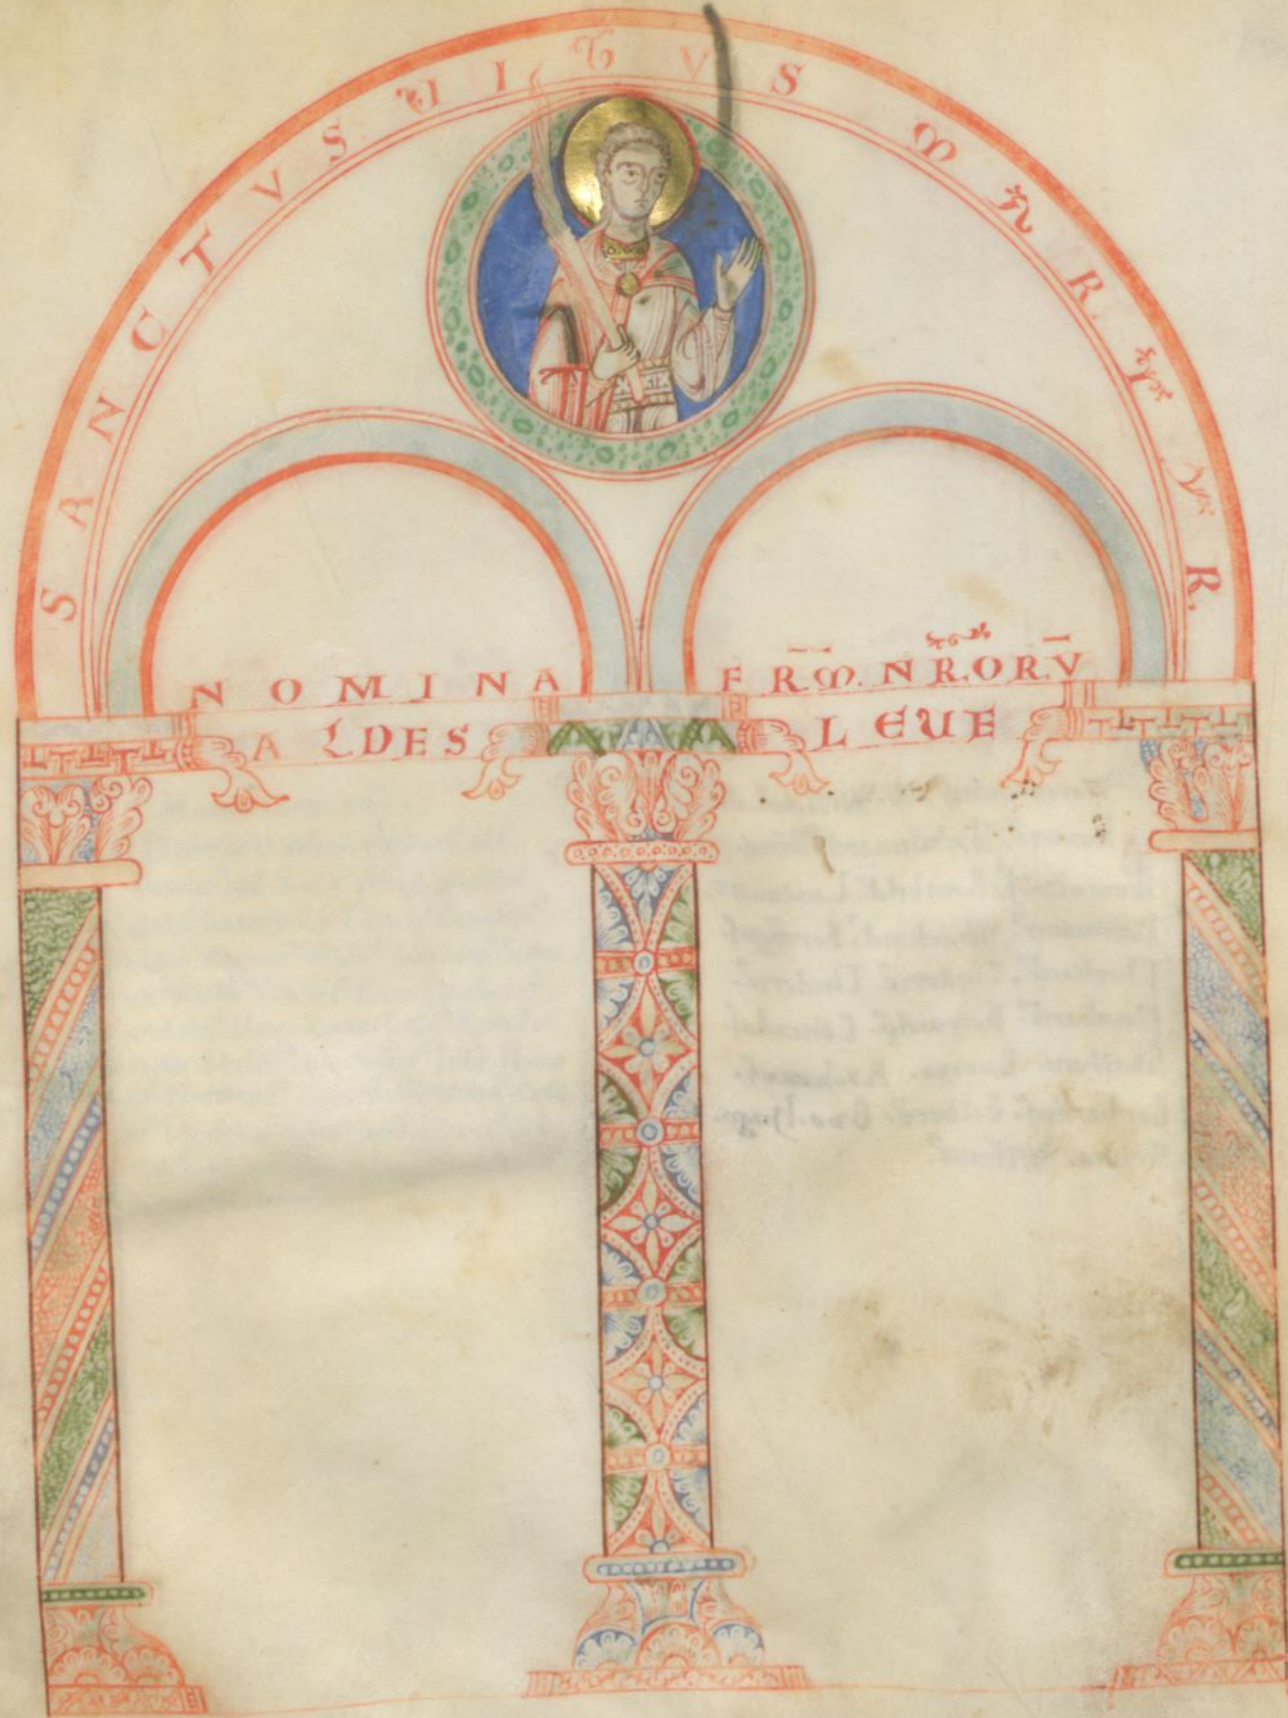 SANCTVS VITVS MAR.TYR.
NOMINA FR̄M̄. NR̄ORV̄
ALDES LEUE